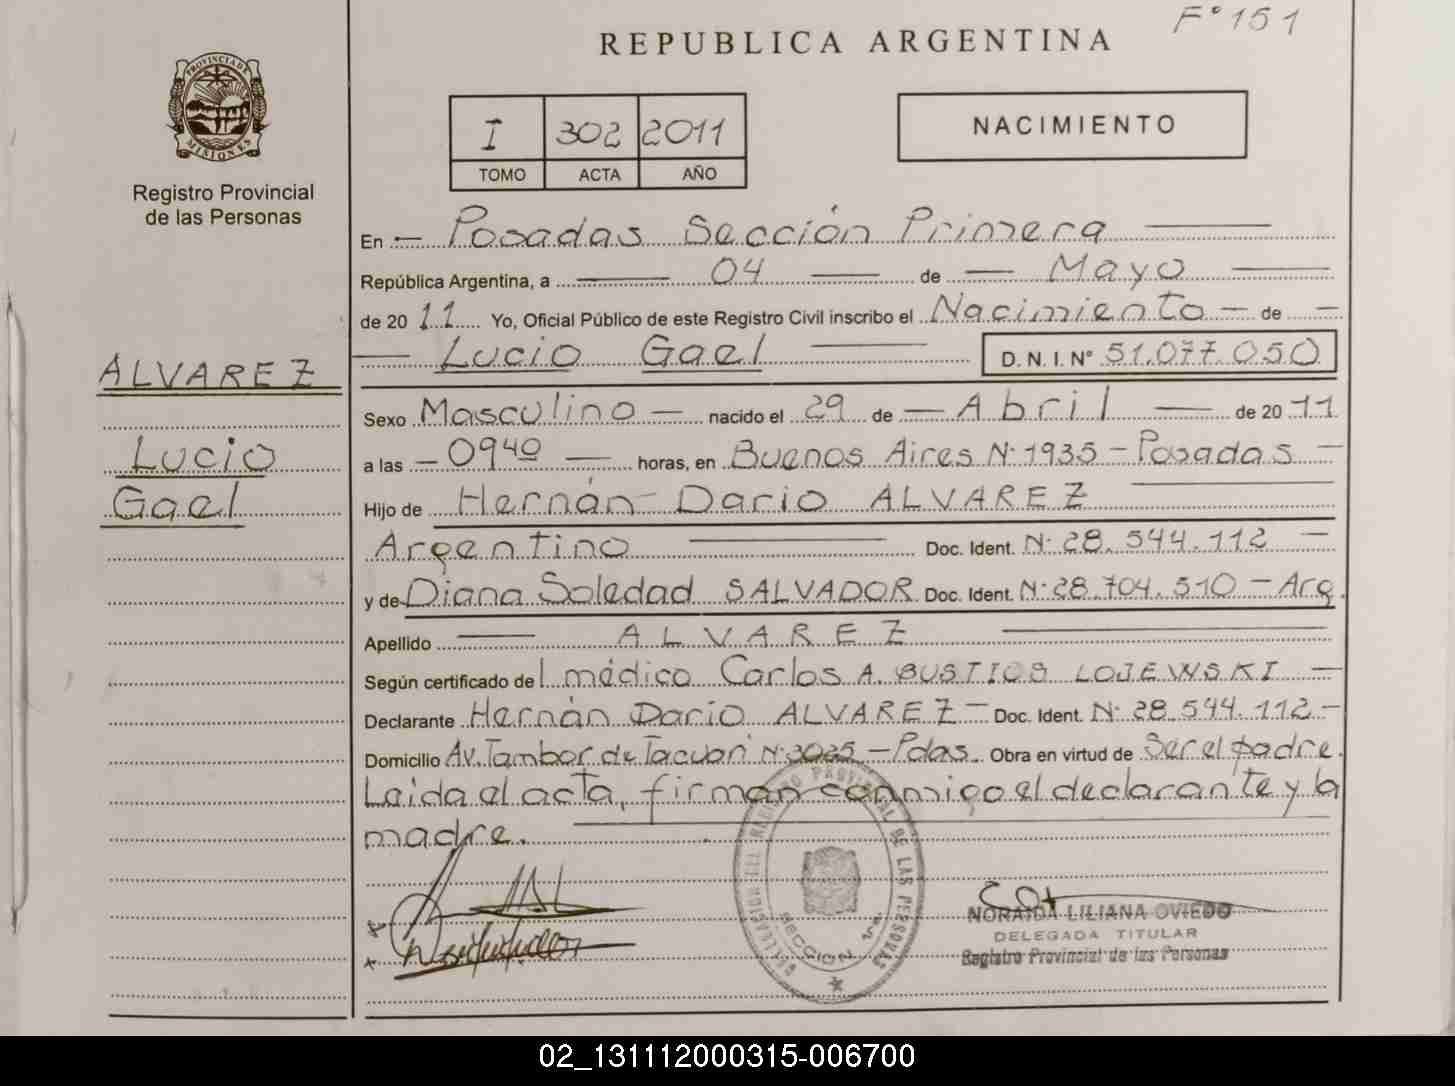 F° 151
REPUBLICA ARGENTINA
PROVINCIA DE
MISIONES
Registro Provincial
de las Personas
I 302 2011
TOMO ACTA AÑO
NACIMIENTO
ALVAREZ
Lucio
Gael
En - Posadas Sección Primera
República Argentina, a 04 de Mayo
de 2011 Yo, Oficial Público de este Registro Civil inscribo el Nacimiento - de -
Lucio Gael D. N. I. N° 51.077.050
Sexo Masculino - nacido el 29 de - Abril - de 2011
a las - 09 40 - horas, en Buenos Aires N° 1935 - Posadas -
Hijo de Hernán Dario ALVAREZ
Argentino Doc. Ident. N° 28.544.112 -
y de Diana Soledad SALVADOR Doc. Ident. N° 28.704.510 - Arg.
Apellido ALVAREZ
Según certificado del médico Carlos A. BUSTIOS LOJEWSKI -
Declarante Hernán Dario ALVAREZ - Doc. Ident. N° 28.544.112 -
Domicilio Av. Tambor de Tacuarí N° 3025 - Pdas. Obra en virtud de Ser el padre.
Leida el acta, firman conmigo el declarante y la
madre.
DELEGACION DEL REGISTRO PROVINCIAL DE LAS PERSONAS
SECCION 1ra.
NORAIDA LILIANA OVIEDO
DELEGADA TITULAR
Registro Provincial de las Personas
02_131112000315-006700